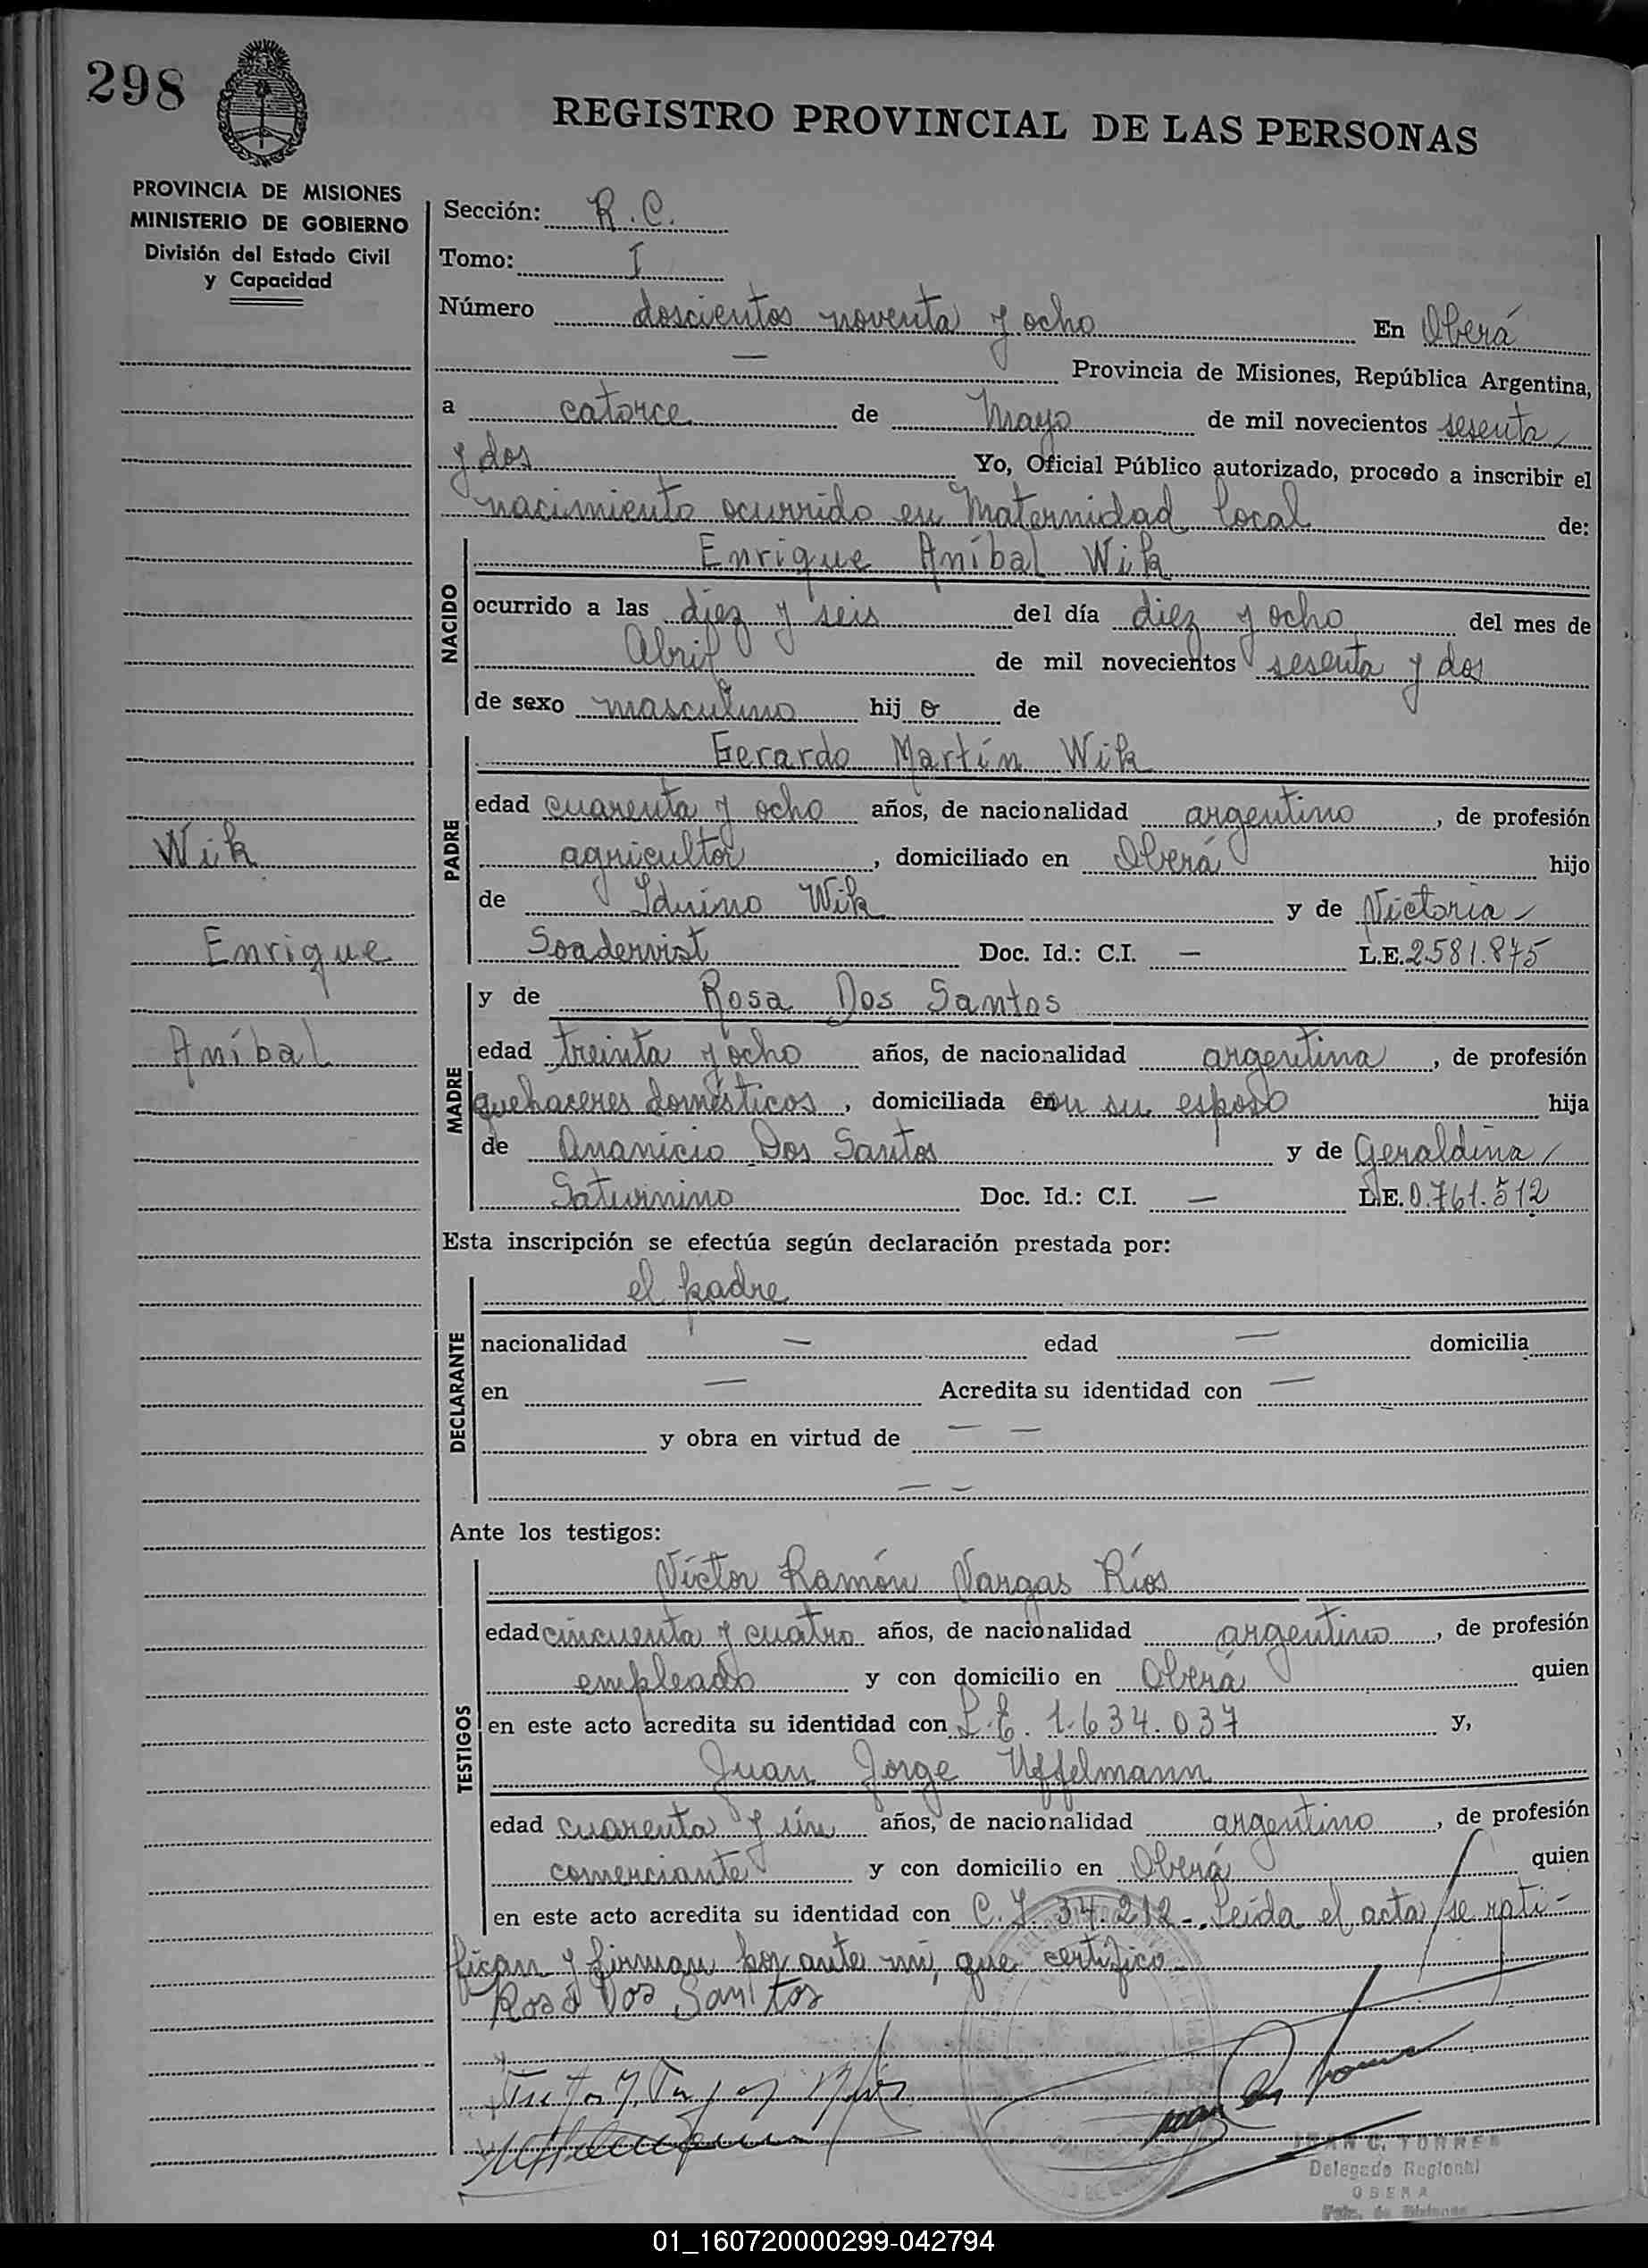 298
REGISTRO PROVINCIAL DE LAS PERSONAS
PROVINCIA DE MISIONES
MINISTERIO DE GOBIERNO
División del Estado Civil
y Capacidad
Sección: R. C.
Tomo: I
Número doscientos noventa y ocho En Oberá
— Provincia de Misiones, República Argentina,
a catorce de Mayo de mil novecientos sesenta
y dos Yo, Oficial Público autorizado, procedo a inscribir el
nacimiento ocurrido en Maternidad Local de:
NACIDO
Enrique Aníbal Wik
ocurrido a las diez y seis del día diez y ocho del mes de
Abril de mil novecientos sesenta y dos
de sexo masculino hijo de
PADRE
Gerardo Martín Wik
edad cuarenta y ocho años, de nacionalidad argentino, de profesión
agricultor, domiciliado en Oberá hijo
de Iduino Wik y de Victoria
Soadervist Doc. Id.: C.I. — L.E. 2581.875
Wik
Enrique
Aníbal
MADRE
y de Rosa Dos Santos
edad treinta y ocho años, de nacionalidad argentina, de profesión
quehaceres domésticos, domiciliada con su esposo hija
de Ananicio Dos Santos y de Geraldina
Saturnino Doc. Id.: C.I. — L.E. 0.761.512
Esta inscripción se efectúa según declaración prestada por:
DECLARANTE
el padre
nacionalidad — edad — domicilia
en — Acredita su identidad con —
y obra en virtud de — —
— —
Ante los testigos:
TESTIGOS
Víctor Ramón Vargas Ríos
edad cincuenta y cuatro años, de nacionalidad argentino, de profesión
empleado y con domicilio en Oberá quien
en este acto acredita su identidad con L.E. 1.634.037 y,
Juan Jorge Uffelmann
edad cuarenta y un años, de nacionalidad argentino, de profesión
comerciante y con domicilio en Oberá quien
en este acto acredita su identidad con C.I. 34.212 -. Leída el acta se rati-
fican y firman por ante mí, que certifico.-
Rosa Dos Santos
JUAN C. TORRES
Delegado Regional
OBERA
01_160720000299-042794